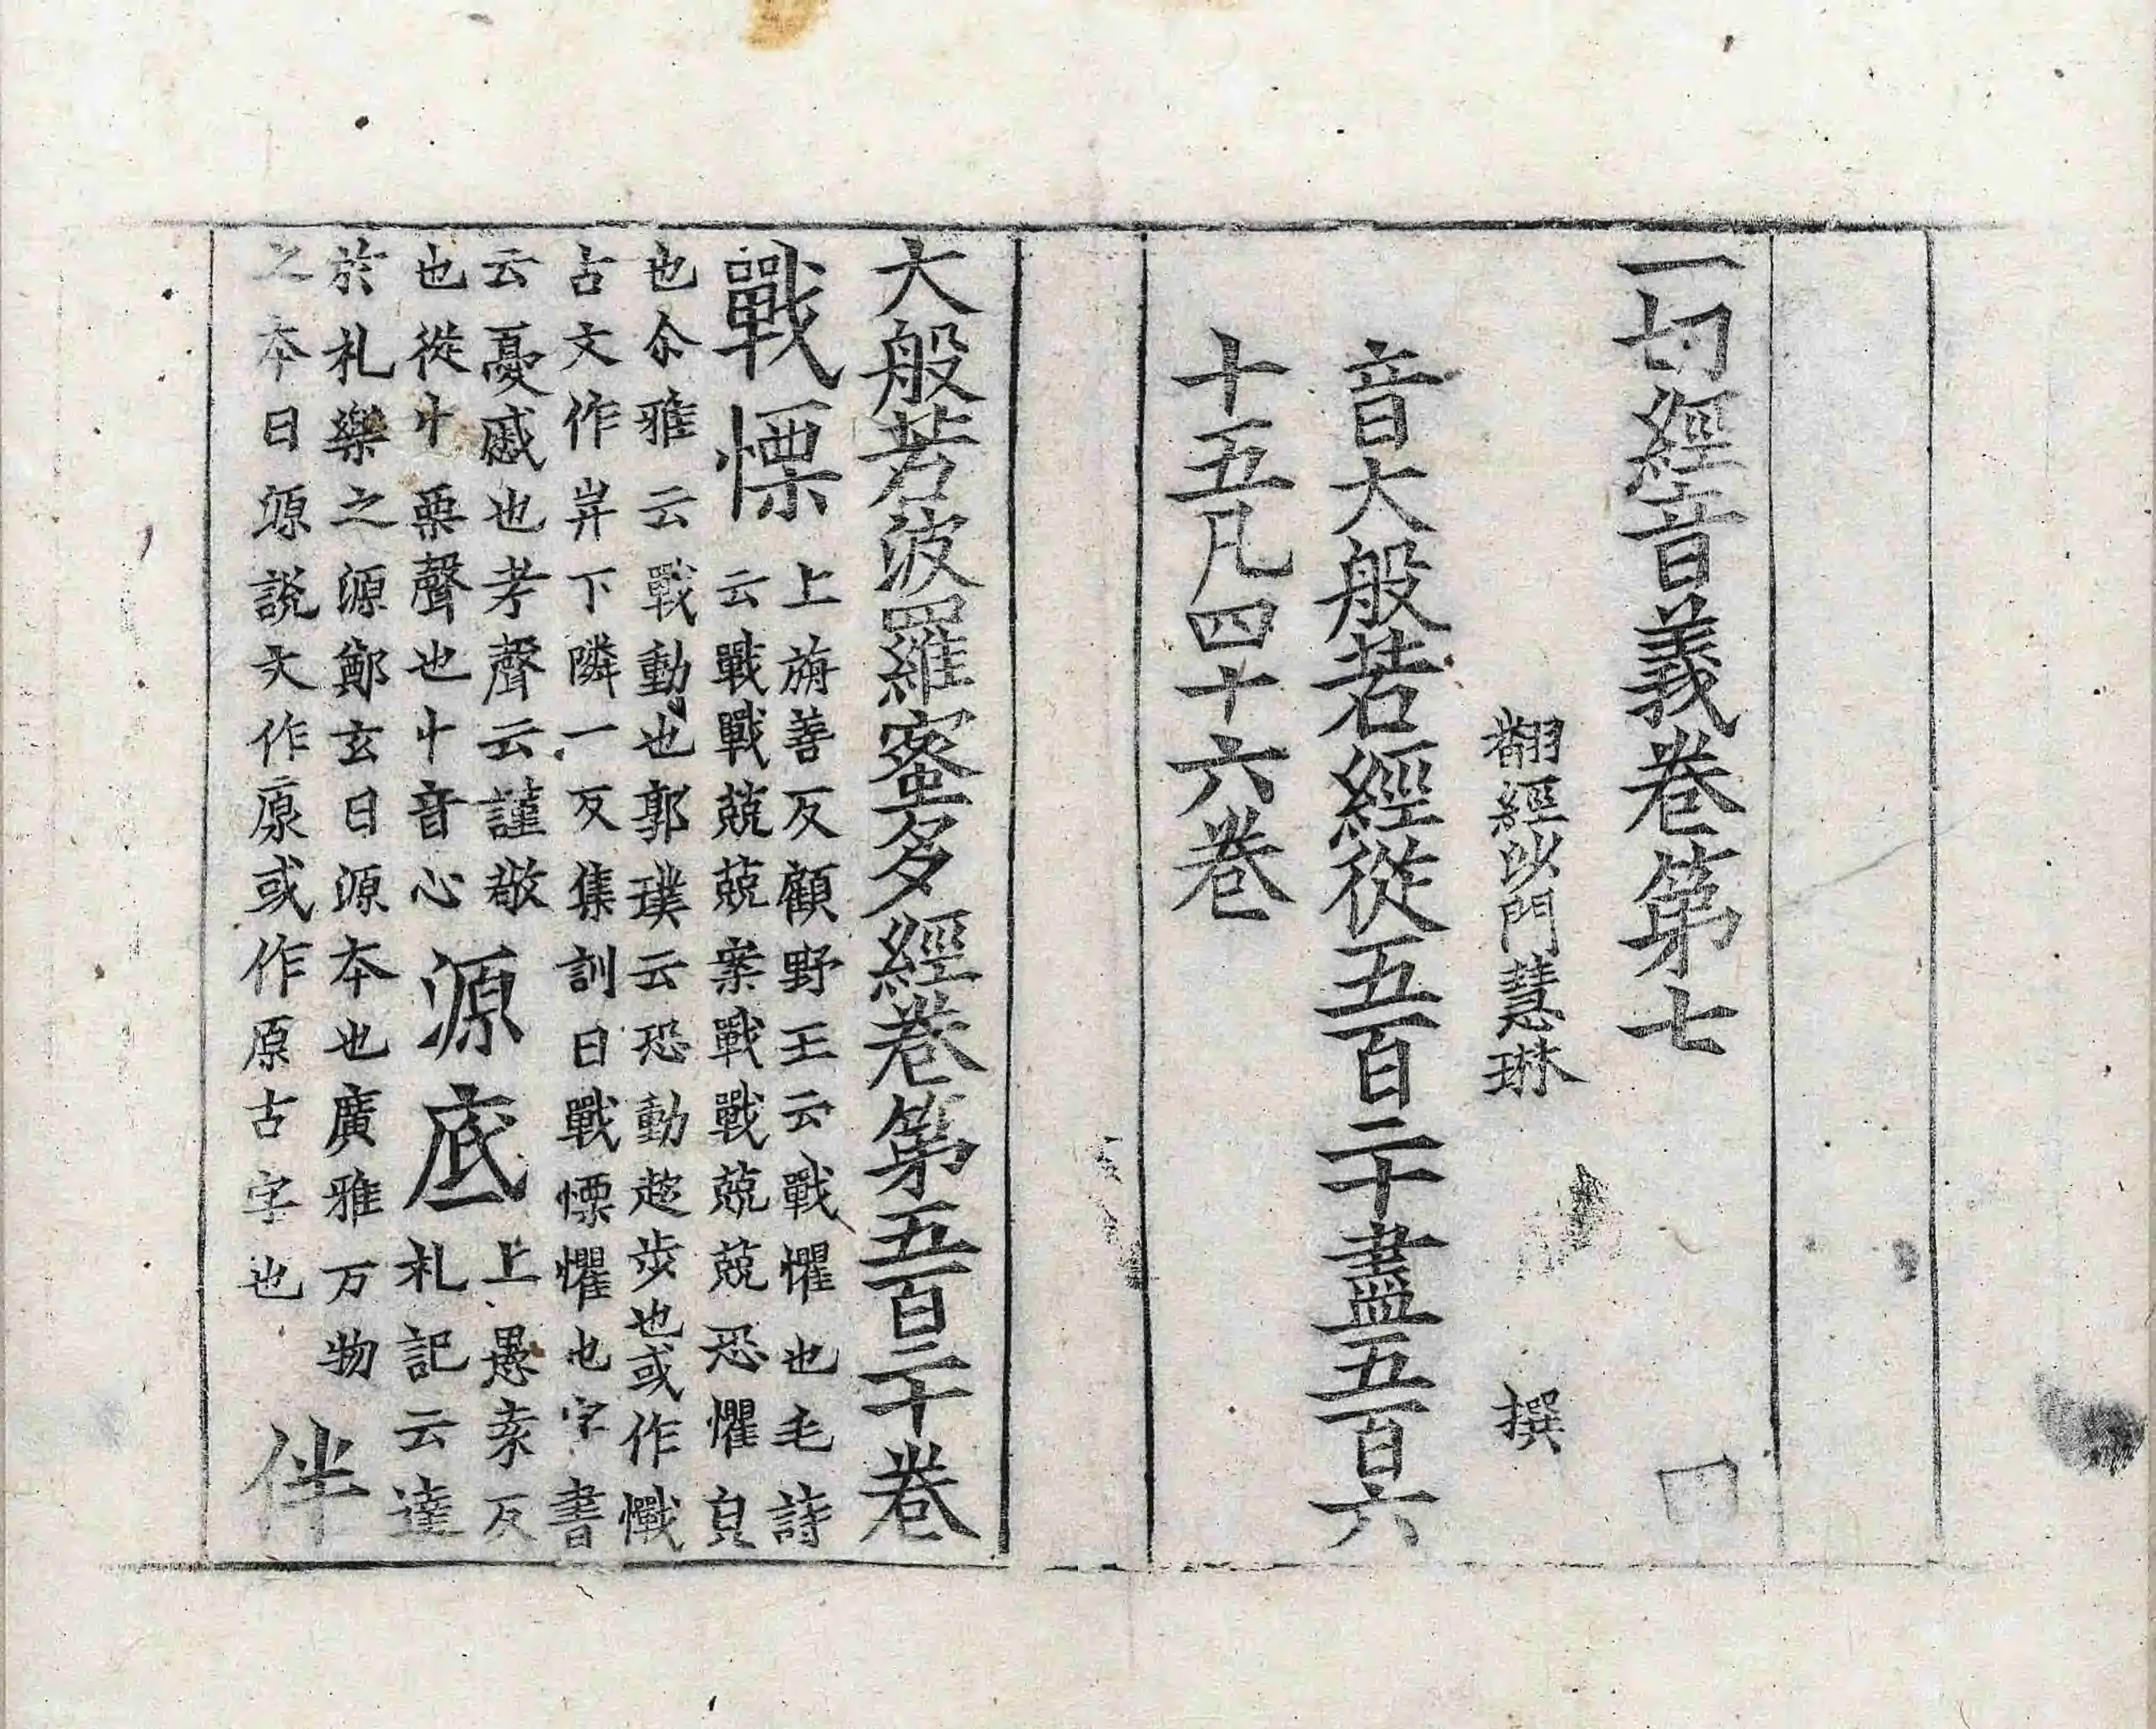 一切經音義卷第七
翻經沙門慧琳 撰
音大般若經從五百二十盡五百六
十五凡四十六卷
大般若波羅蜜多經卷第五百二十卷
戰慄 上旃善反顧野王云戰懼也毛詩
云戰戰兢兢案戰戰兢兢恐懼皃
也尒雅云戰動也郭璞云恐動趍步也或作㦃
古文作𢌳下隣一反集訓曰戰慄懼也字書
云憂慼也考聲云謹敬
也從忄栗聲也忄音心 源底 上愚袁反
札記云達
於札樂之源鄭玄曰源本也廣雅万物
之本曰源說文作厡或作原古字也 伴